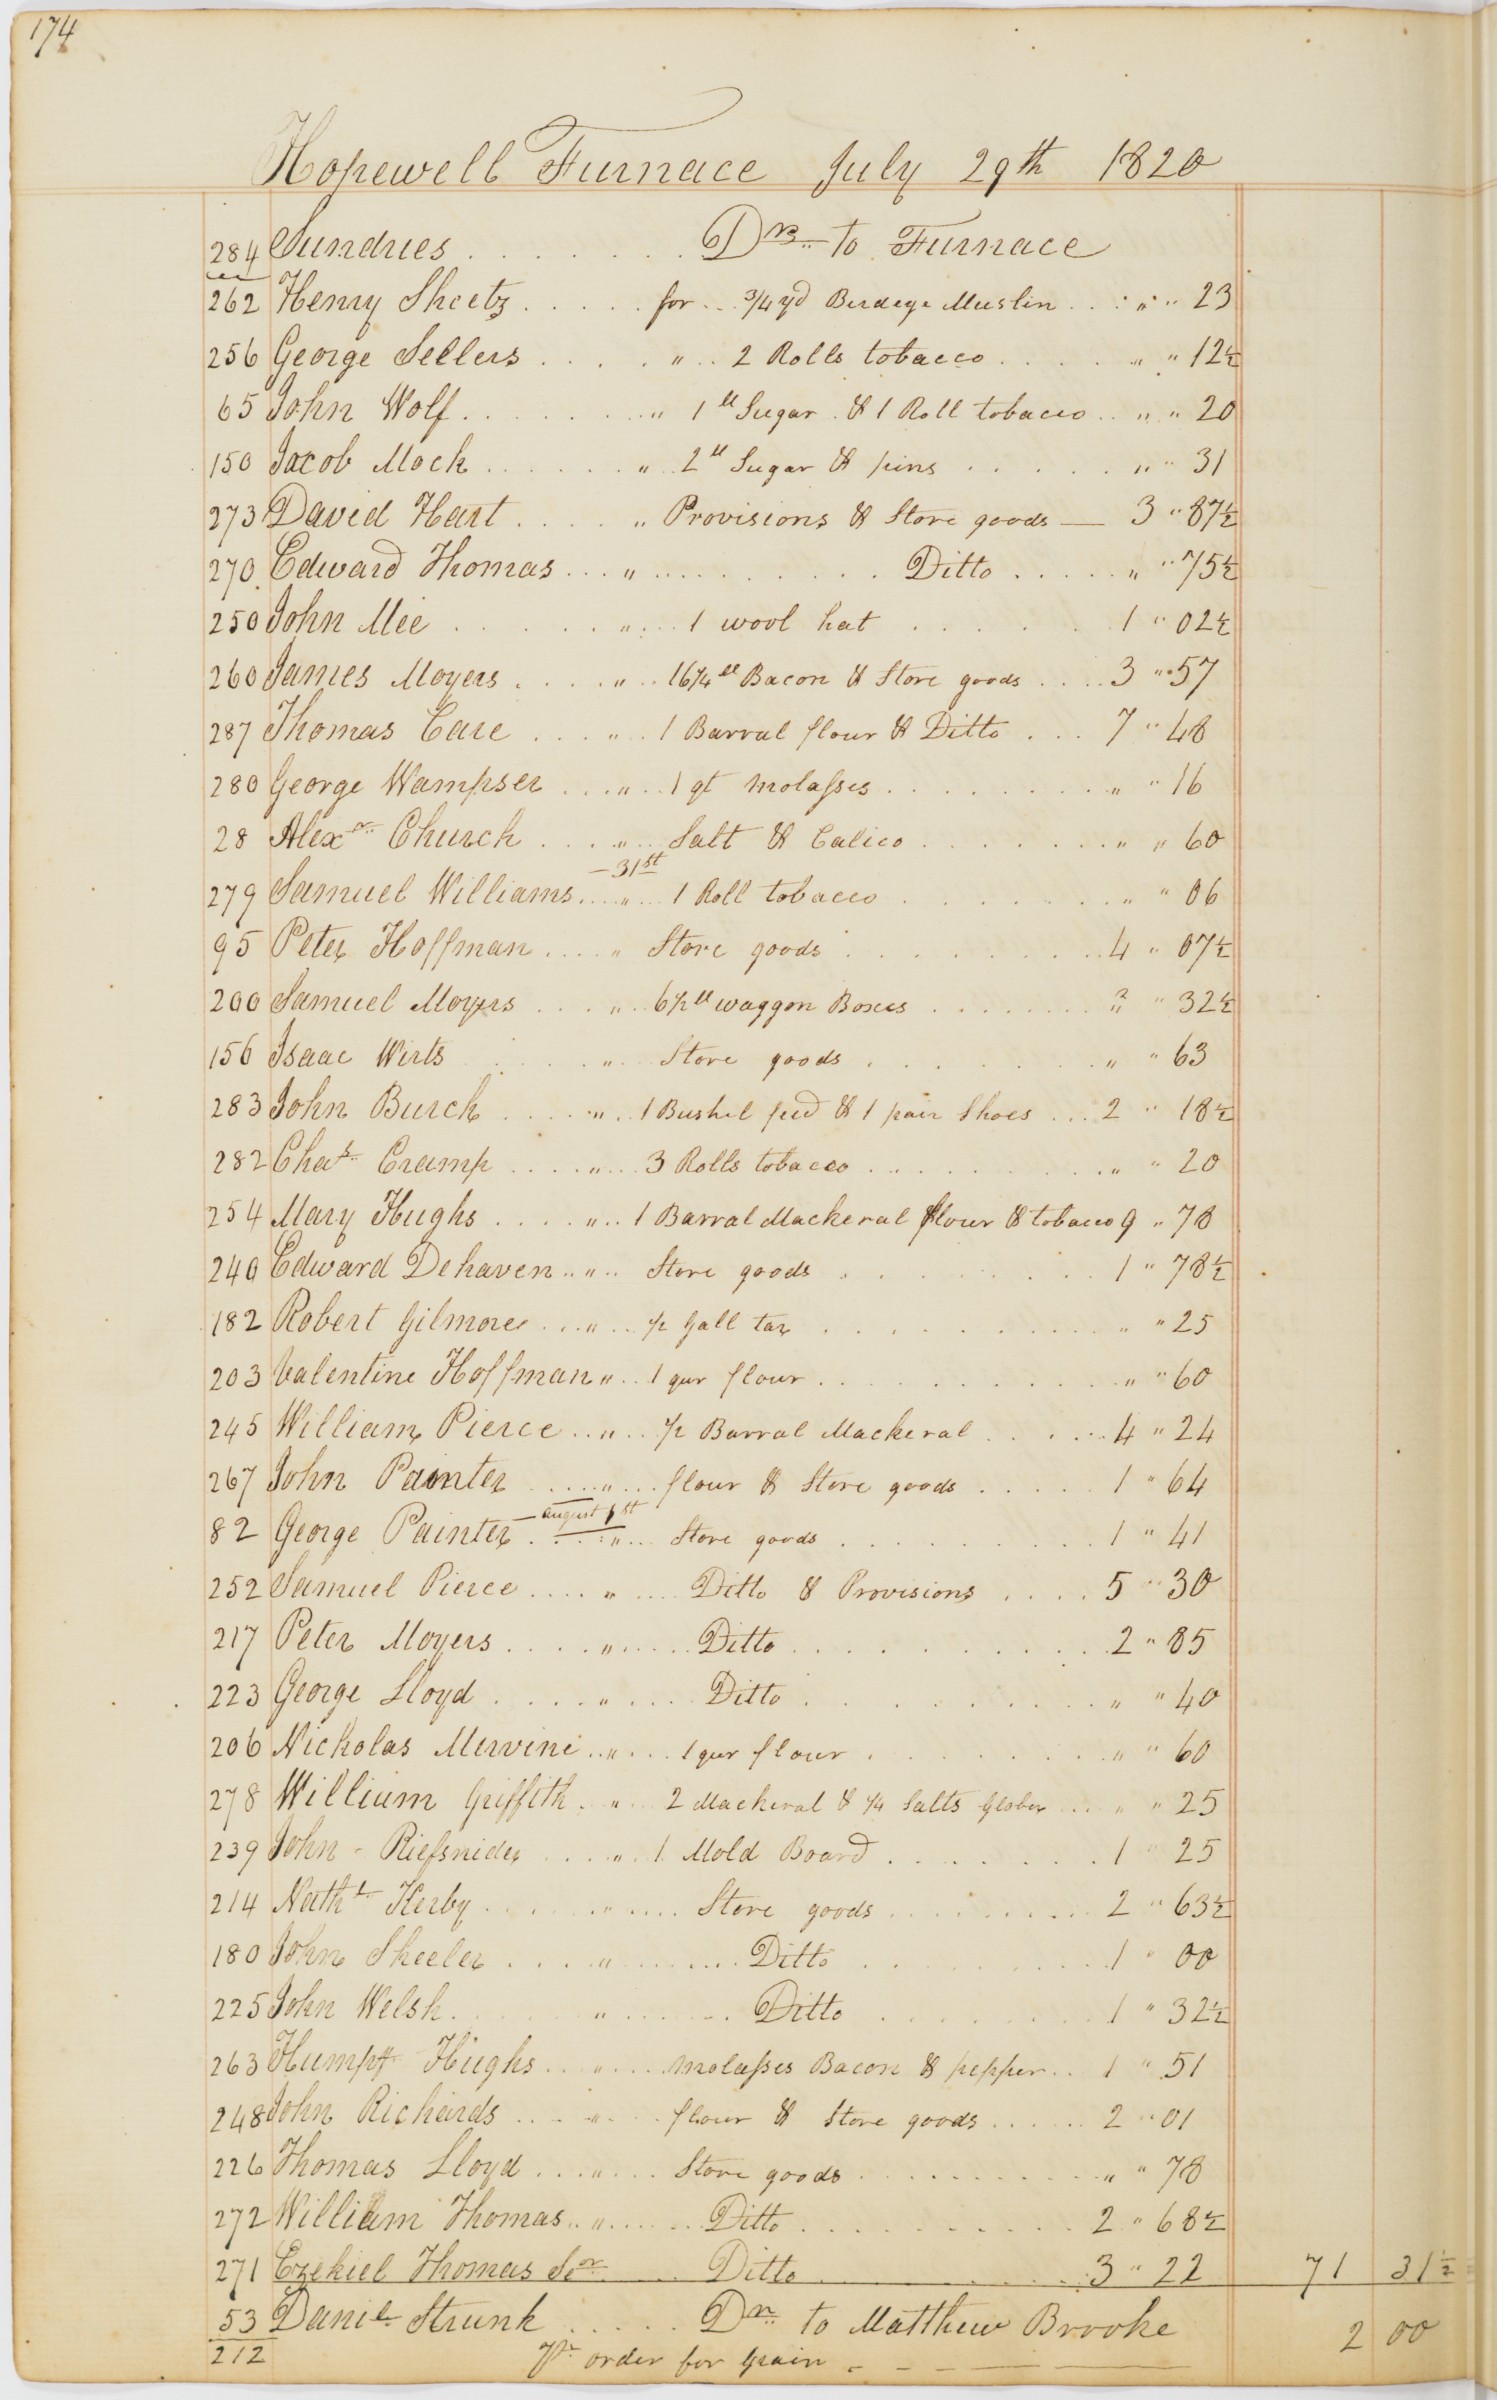 174
Hopewell Furnace July 29th 1820
284 Sundries . . . . . . . . Drs to Furnace
262 Henry Sheetz . . . . . for . . 3/4 yd Birdeye Muslin . . . " " 23
256 George Sellers . . . . " . . 2 Rolls tobacco . . . . . " " 12½
65 John Wolf . . . . . . . " 1 ll Sugar . & 1 Roll tobacco . . " " 20
150 Jacob Mock . . . . . . " 2 ll Sugar & pins . . . . . " " 31
273 David Hart . . . . . " Provisions & Store goods — 3 " 87½
270 Edward Thomas . . . " . . . . . . . . . . Ditto . . . . . " " 75½
250 John Mee . . . . . . " . . . 1 wool hat . . . . . . 1 " 02½
260 James Moyers . . . . " . . 16¼ ll Bacon & Store goods . . . . 3 " 57
287 Thomas Care . . . . " . . 1 Barral flour & Ditto . . . 7 " 48
280 George Wampser . . . " . . 1 qt molasses . . . . . . . . . " " 16
28 Alexr Church . . . . " . . . Salt & Calico . . . . . . . . " " 60
— 31st
279 Samuel Williams . . . . " . . . 1 Roll tobacco . . . . . . . . " " 06
95 Peter Hoffman . . . . " Store goods . . . . . . . . . 4 " 07½
200 Samuel Moyers . . . . " . . 6½ ll waggon Boxes . . . . . . . . " " 32½
156 Isaac Wirts . . . . " . . Store goods . . . . . . . " " 63
283 John Burch . . . . . " . . 1 Bushel feed & 1 pair Shoes . . . 2 " 18½
282 Chas. Cramp . . . . " . . . 3 Rolls tobacco . . . . . . . . . . " " 20
254 Mary Hughs . . . . " . . 1 Barral Mackeral flour & tobacco 9 " 78
240 Edward Dehaven . . " . . Store goods . . . . . . . . . 1 " 78½
182 Robert Gilmore . . . " . . ½ Gall tar . . . . . . . . . . " " 25
203 Valentine Hoffman " . . 1 qur flour . . . . . . . . . . . " " 60
245 William Pierce . . " . . ½ Barral Mackeral . . . . . . 4 " 24
267 John Painter . . . . . " . . . flour & Store goods . . . . . 1 " 64
— August 1st
82 George Painter . . . . " . . . Store goods . . . . . . . . . 1 " 41
252 Samuel Pierce . . . . " . . . . Ditto & Provisions . . . . 5 " 30
217 Peter Moyers . . . . " . . . . . Ditto . . . . . . . . . . . 2 " 85
223 George Lloyd . . . . . " . . . . Ditto . . . . . . . . . . . " " 40
206 Nicholas Mervine . . " . . . 1 qur flour . . . . . . . . . " " 60
278 William Griffith . . " . . 2 Mackeral & ¼ Salts Glober . . . " " 25
239 John Riefsnider . . . . " . 1 Mold Board . . . . . . . . 1 " 25
214 Nathl Kerby . . . . . . " . . . . Store goods . . . . . . . . . 2 " 63½
180 John Sheeler . . . . " . . . . . . . Ditto . . . . . . . . . . 1 " 00
225 John Welsh . . . . . " . . . . . . . Ditto . . . . . . . . . 1 " 32½
263 Humpy Hughs . . . " . . . . molasses Bacon & pepper . . 1 " 51
248 John Richards . . . . " . . . . flour & Store goods . . . . . . 2 " 01
226 Thomas Lloyd . . . . " . . . . Store goods . . . . . . . . . . . " " 78
272 William Thomas . . " . . . . . . Ditto . . . . . . . . . . . . 2 " 68½
271 Ezekiel Thomas Senr Ditto . . . . 3 " 22 71 31½
53 Danil Strunk . . . . . Dr to Matthew Brooke
212 Pr order for Grain - - - — 2 00